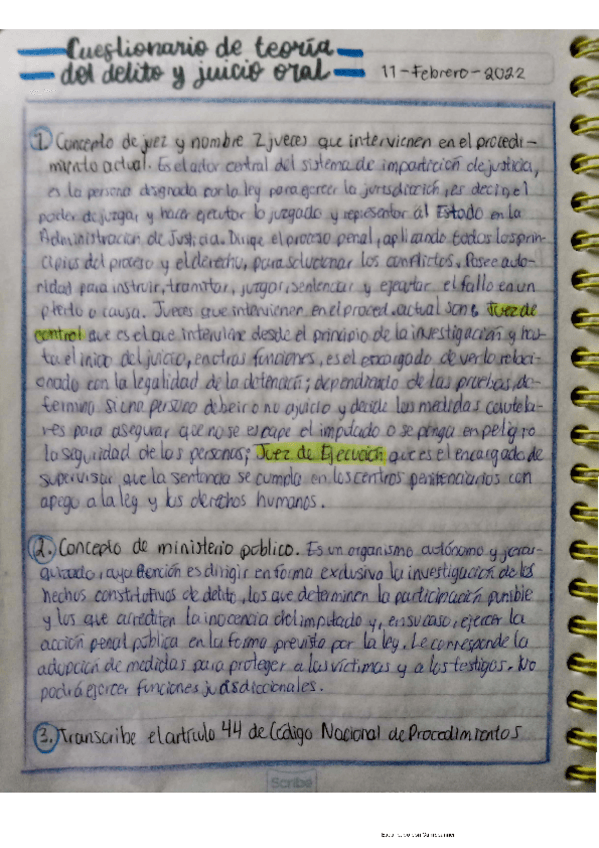 Cuestionario de teoría
del delito y juicio oral 11-Febrero-2022
1. Concepto de juez y nombre 2 jueces que intervienen en el procedi-
miento actual. Es el actor central del sistema de impartición de justicia,
es la persona designada por la ley para ejercer la jurisdicción, es decir, el
poder de juzgar, y hacer ejecutar lo juzgado y representar al Estado en la
Administración de Justicia. Dirige el proceso penal, aplicando todos los prin-
cipios del proceso y el derecho, para solucionar los conflictos. Posee auto-
ridad para instruir, tramitar, juzgar, sentenciar y ejecutar el fallo en un
pleito o causa. Jueces que intervienen en el proced. actual son: Juez de
control que es el que interviene desde el principio de la investigación y has-
ta el inicio del juicio, en otras funciones, es el encargado de ver lo relaci-
onado con la legalidad de la detención; dependiendo de las pruebas, de-
termina si una persona debe ir o no a juicio y decide las medidas cautela-
res para asegurar que no se escape el imputado o se ponga en peligro
la seguridad de las personas; Juez de Ejecución que es el encargado de
supervisar que la sentencia se cumpla en los centros penitenciarios con
apego a la ley y los derechos humanos.
2. Concepto de ministerio público. Es un organismo autónomo y jerar-
quizado, cuya función es dirigir en forma exclusiva la investigación de los
hechos constitutivos de delito, los que determinen la participación punible
y los que acrediten la inocencia del imputado y, en su caso, ejercer la
acción penal pública en la forma prevista por la ley. Le corresponde la
adopción de medidas para proteger a las víctimas y a los testigos. No
podrá ejercer funciones jurisdiccionales.
3. Transcribe el artículo 44 de Código Nacional de Procedimientos
Scribe